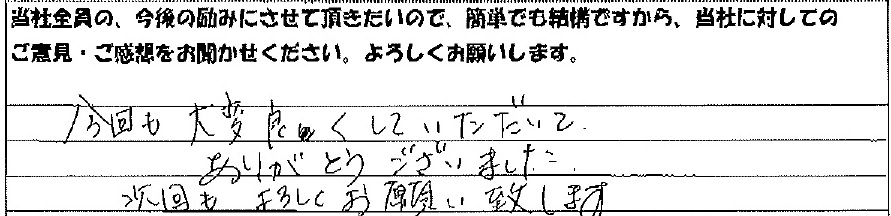 当社全員の、今後の励みにさせて頂きたいので、簡単でも結構ですから、当社に対しての
ご意見・ご感想をお聞かせください。よろしくお願いします。
今回も大変良くしていただいて、
ありがとうございました。
次回もよろしくお願い致します